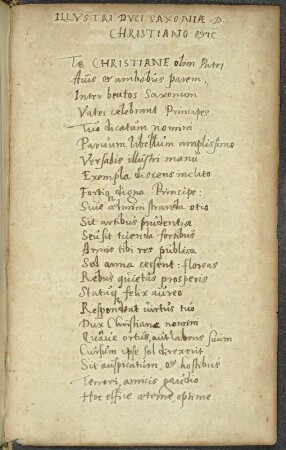 ILLVSTRI DVCI SAXONIÆ D.
CHRISTIANO etc
Te CHRISTIANE olim Patri
Auis et ambobus parem,
Inter beatos Saxonum
Vates celebrant Principes
Tuo dicatum nomini
Paruum libellum amplissimo
Versabis illustri manu
Exempla discens inclito
Fortiq digna Principe:
Siue administranda otio
Sit artibus prudentia
Seu sit tuenda fortibus
Armis tibi res publica
Sed arma cessent: floreas
Rebus quietus prosperis
Statuq felix aureo
Respondeat virtus tuo
Dux Christiane nomini
Quaue ortus, aut labens suum
Cursum ipse sol direxerit
Sit auspicatum, et hostibus
Terrori, amicis gaudio
Hoc effice æterne optime